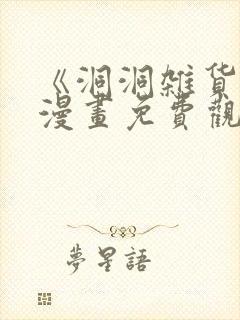 《洞洞雑货
漫畫免費觀
夢星語